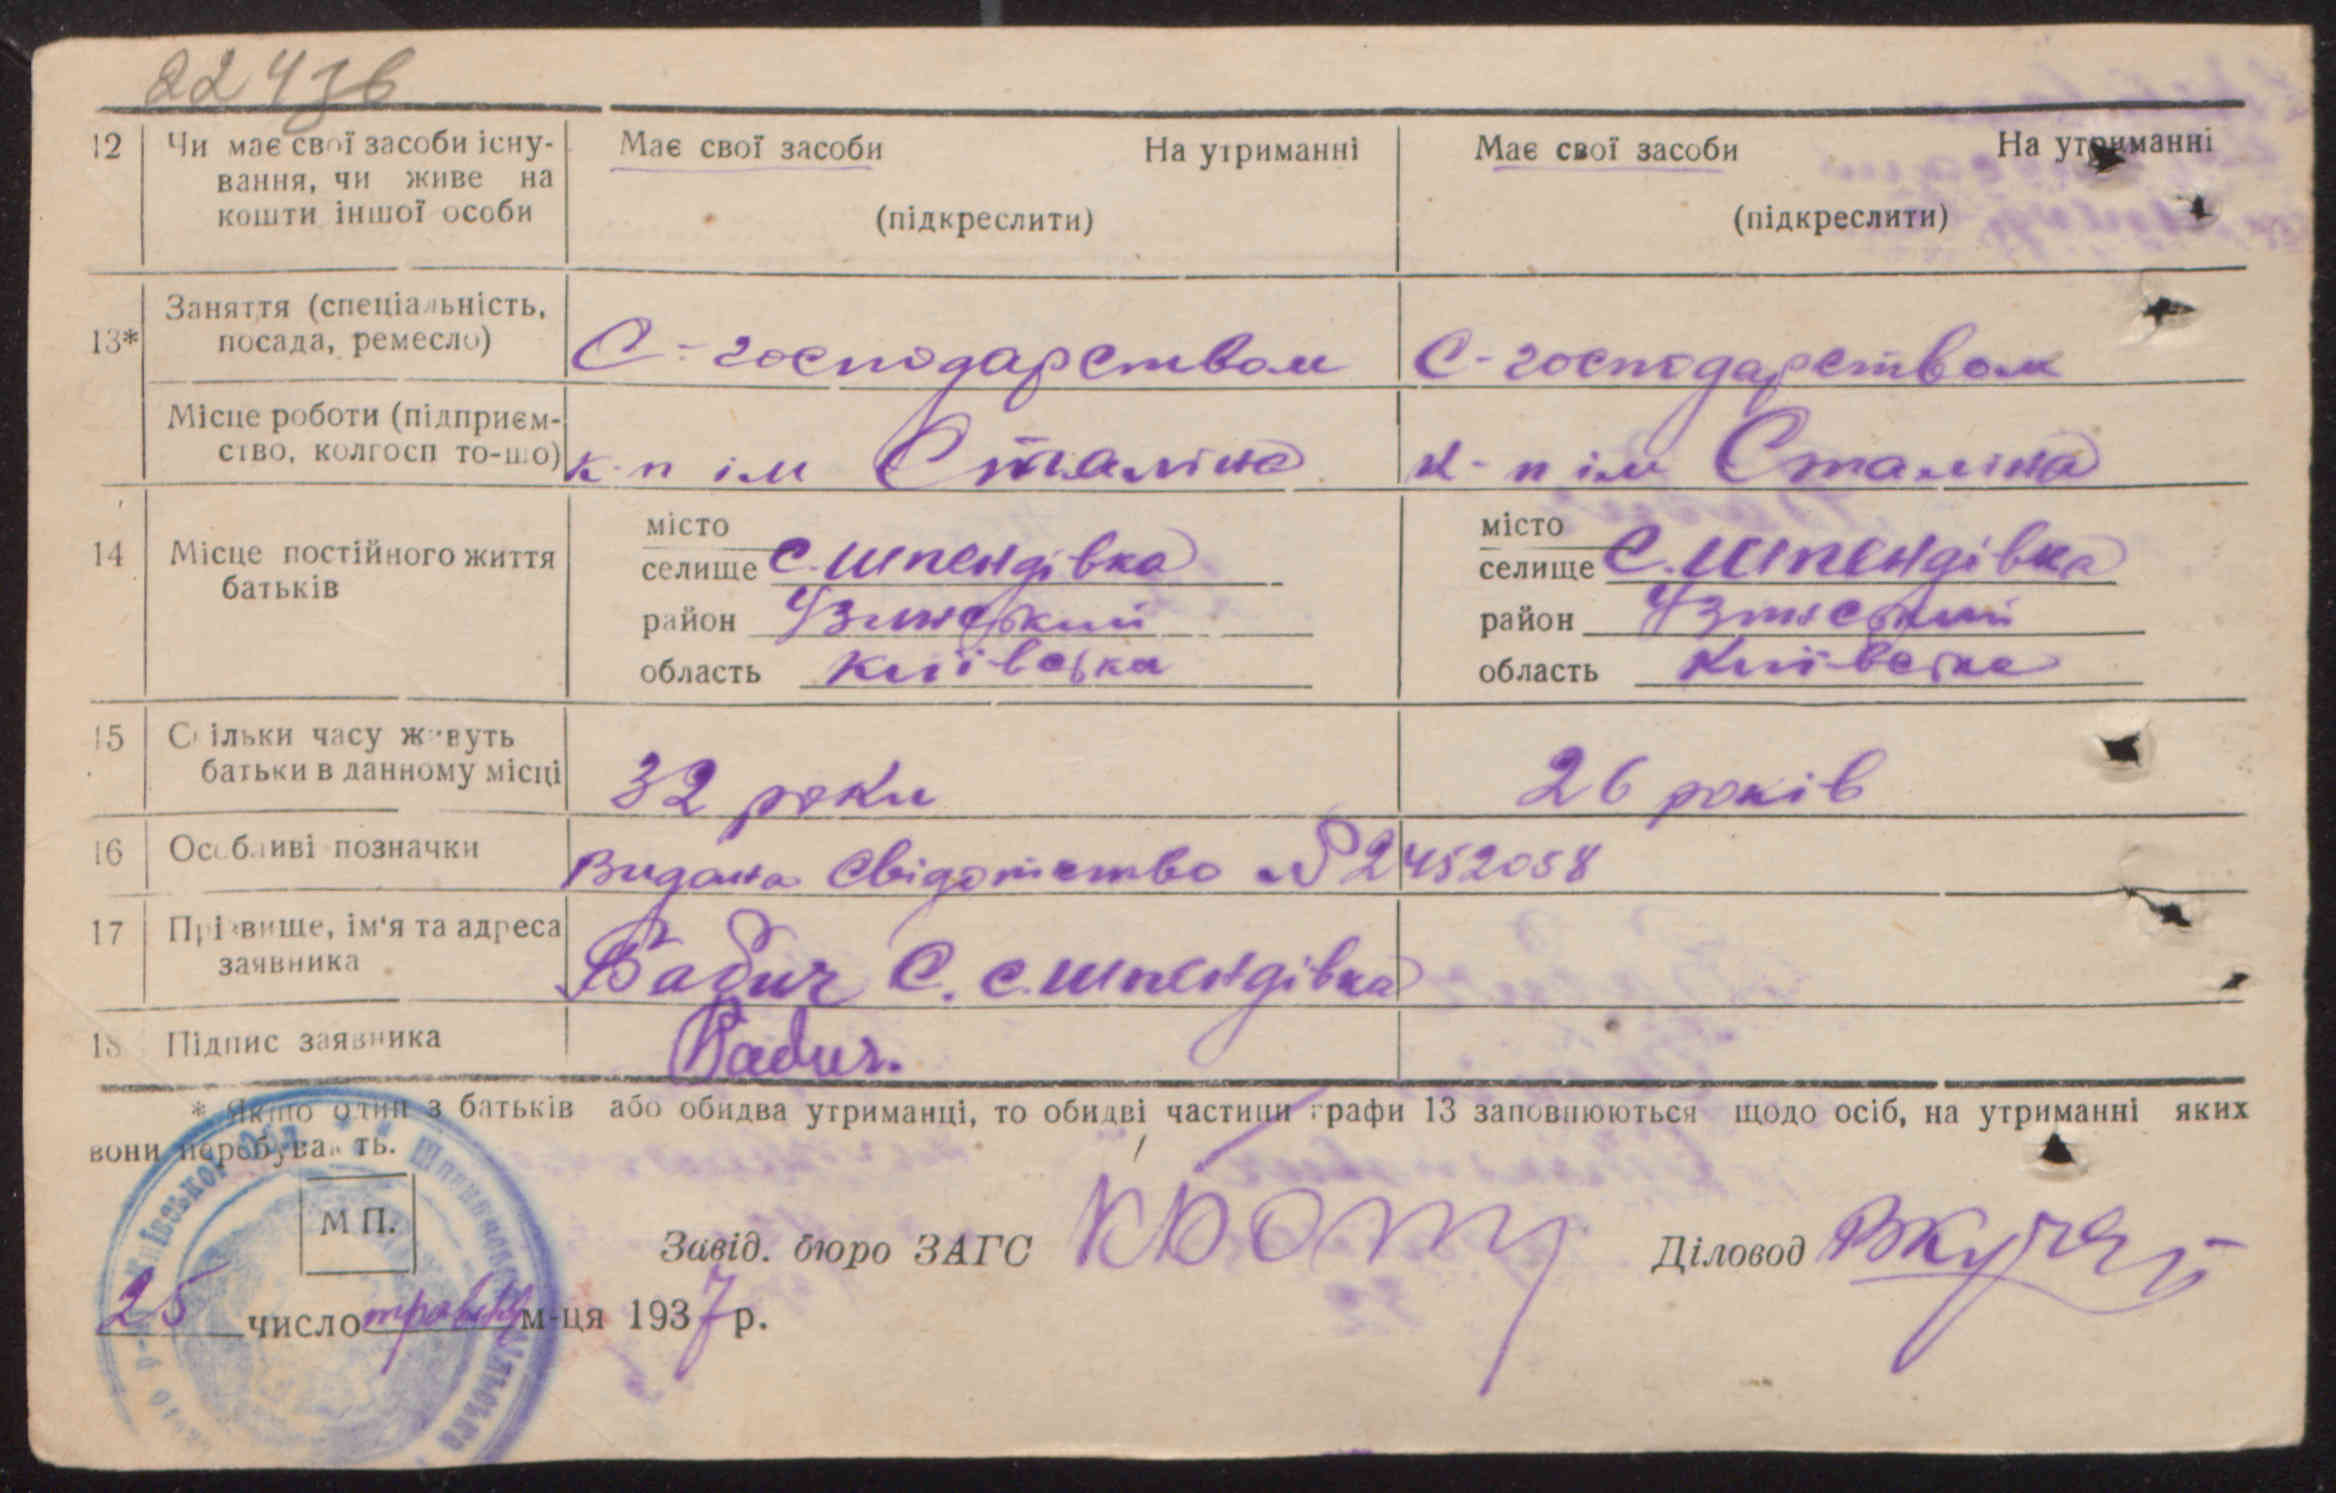 22436
12 Чи має свої засоби існу-
вання, чи живе на
кошти іншої особи
Має свої засоби На утриманні
(підкреслити)
Має свої засоби На утриманні
(підкреслити)
13* Заняття (спеціальність,
посада, ремесло)
С-господарством
С-господарством
Місце роботи (підприєм-
ство, колгосп то-що)
к-п ім Сталіна
к-п ім Сталіна
14 Місце постійного життя
батьків
місто
селище с. Шпендівка
район Узинський
область Київська
місто
селище с. Шпендівка
район Узинський
область Київська
15 Скільки часу живуть
батьки в данному місці
32 роки
26 років
16 Особливі позначки
Видана Свідотство № 2452058
17 Прізвище, ім'я та адреса
заявника
Бабич С. с. Шпендівка
18 Підпис заявника
Бабич.
* Якщо один з батьків або обидва утриманці, то обидві частини графи 13 заповнюються щодо осіб, на утриманні яких
вони перебувають.
М П.
Завід. бюро ЗАГС
Діловод
25 число травня м-ця 1937 р.